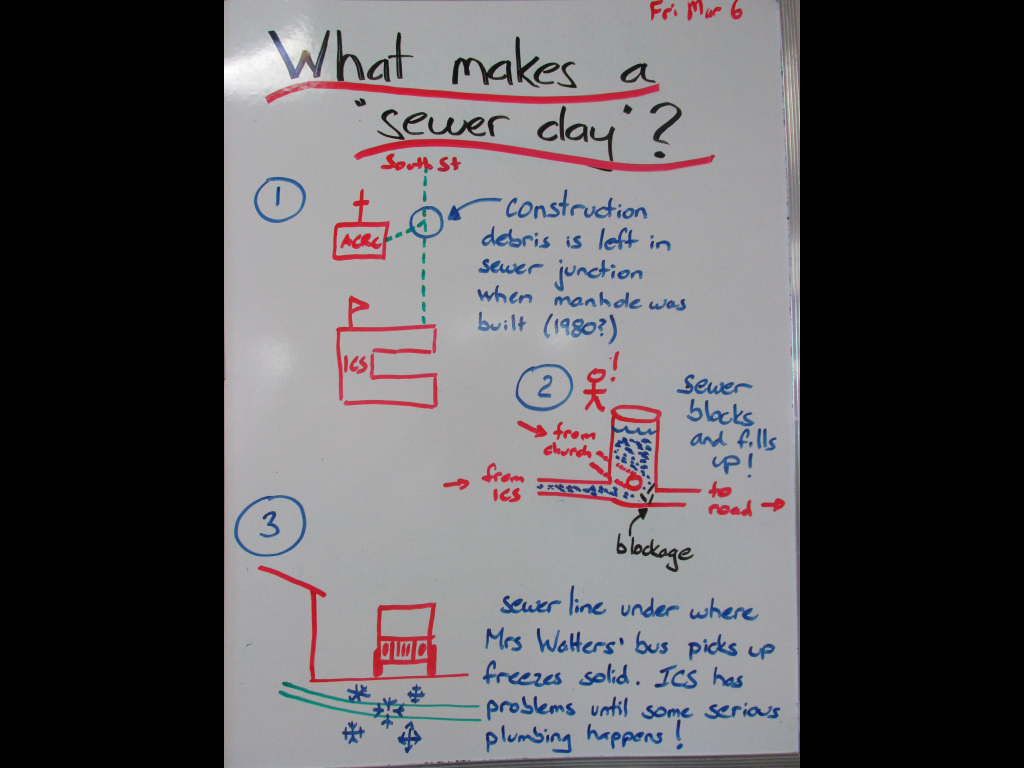 Fri Mar 6
What makes a
"sewer day"?
South St
1
ACRC
construction
debris is left in
sewer junction
when manhole was
built (1980?)
ICS
2
!
sewer
blocks
and fills
up!
from
church
from
ICS
to
road
blockage
3
sewer line under where
Mrs Walters' bus picks up
freezes solid. ICS has
problems until some serious
plumbing happens!